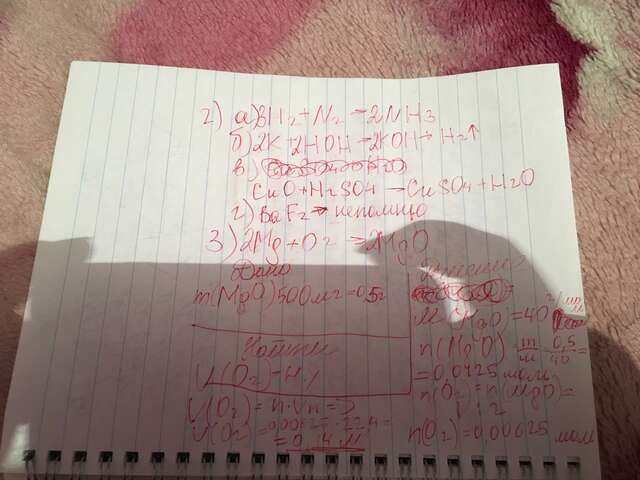 2) а) 3H2 + N2 → 2NH3
б) 2K + 2HOH → 2KOH + H2↑
в)
CuO + H2SO4 → CuSO4 + H2O
г) BaF2 → непомню
3) 2Mg + O2 = 2MgO
Дано
m(MgO) 500мг = 0,5г
Найти
V(O2) - н.у
V(O2) = n · Vn =>
V(O2) = 0,00625 · 22,4 =
= 0,14 л
Решение
M(MgO) = 40 г/моль
n(MgO) = m/M = 0,5/40 =
= 0,0125 моль
n(O2) = n(MgO) =
1 : 2
n(O2) = 0,00625 моль